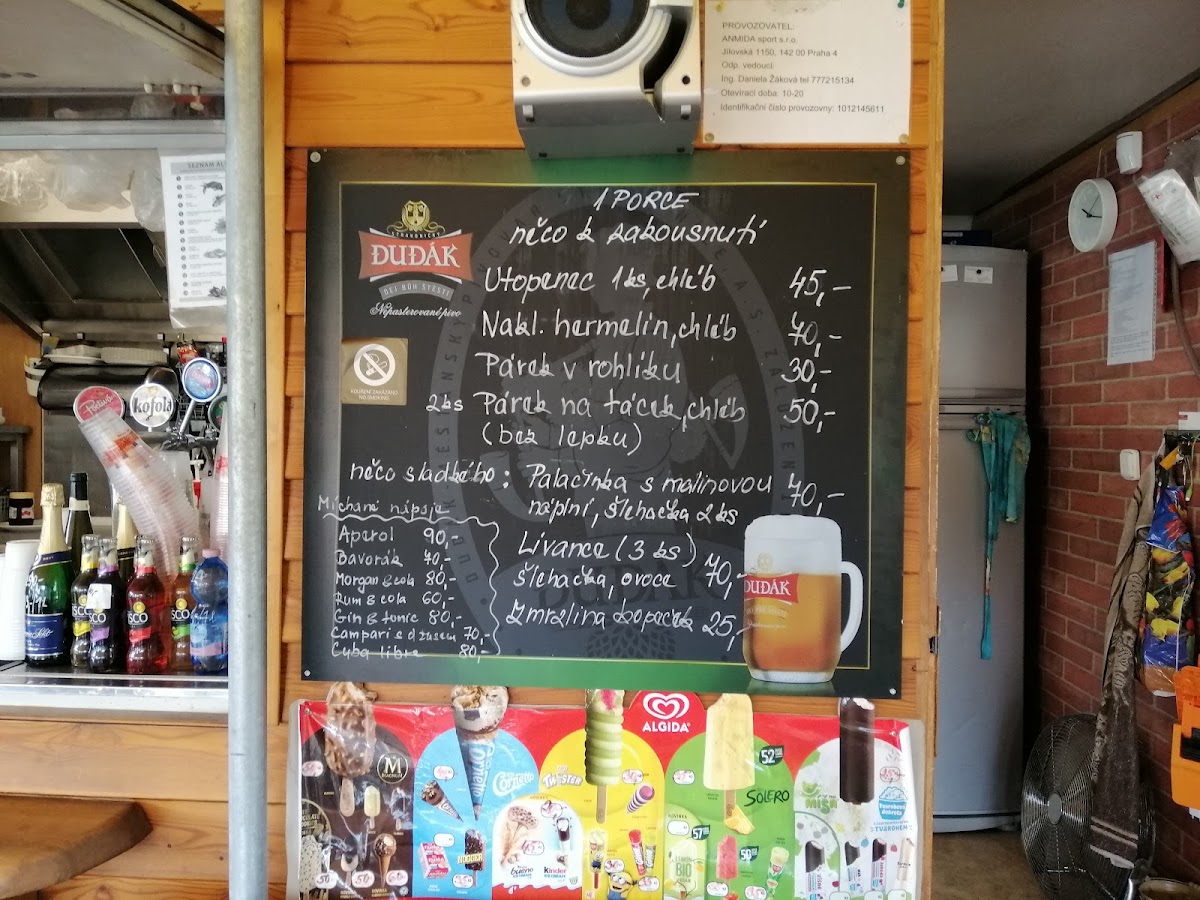 PROVOZOVATEL:
ANMIDA sport s.r.o.
Jílovská 1150, 142 00 Praha 4
Odp. vedoucí:
Ing. Daniela Žáková tel 777215134
Otevírací doba: 10-20
Identifikační číslo provozovny: 1012145611
SEZNAM
STRAKONICKÝ
DUDÁK
DEJ BŮH ŠTĚSTÍ
Nepasterované pivo
KOUŘENÍ ZAKÁZÁNO
NO SMOKING
1 PORCE
něco k zakousnutí
Utopenec 1ks, chléb 45,-
Nakl. hermelín, chléb 70,-
Párek v rohlíku 30,-
2ks Párek na tácek, chléb 50,-
(bez lepku)
něco sladkého: Palačinka s malinovou 70,-
náplní, šlehačka 2ks
Lívance (3 ks)
šlehačka, ovoce 70,-
Zmrzlina kopeček 25,-
Míchané nápoje
Aperol 90,-
Bavorák 70,-
Morgan & cola 80,-
Rum & cola 60,-
Gin & tonic 80,-
Campari s džusem 70,-
Cuba libre 80,-
DUDÁK
kofola
ALGIDA
M
MAGNUM
Cornetto
TWISTER
SOLERO
52
57
50
MÍŠA
TVAROHEM
bueno
kinder
NOGGER
BIO